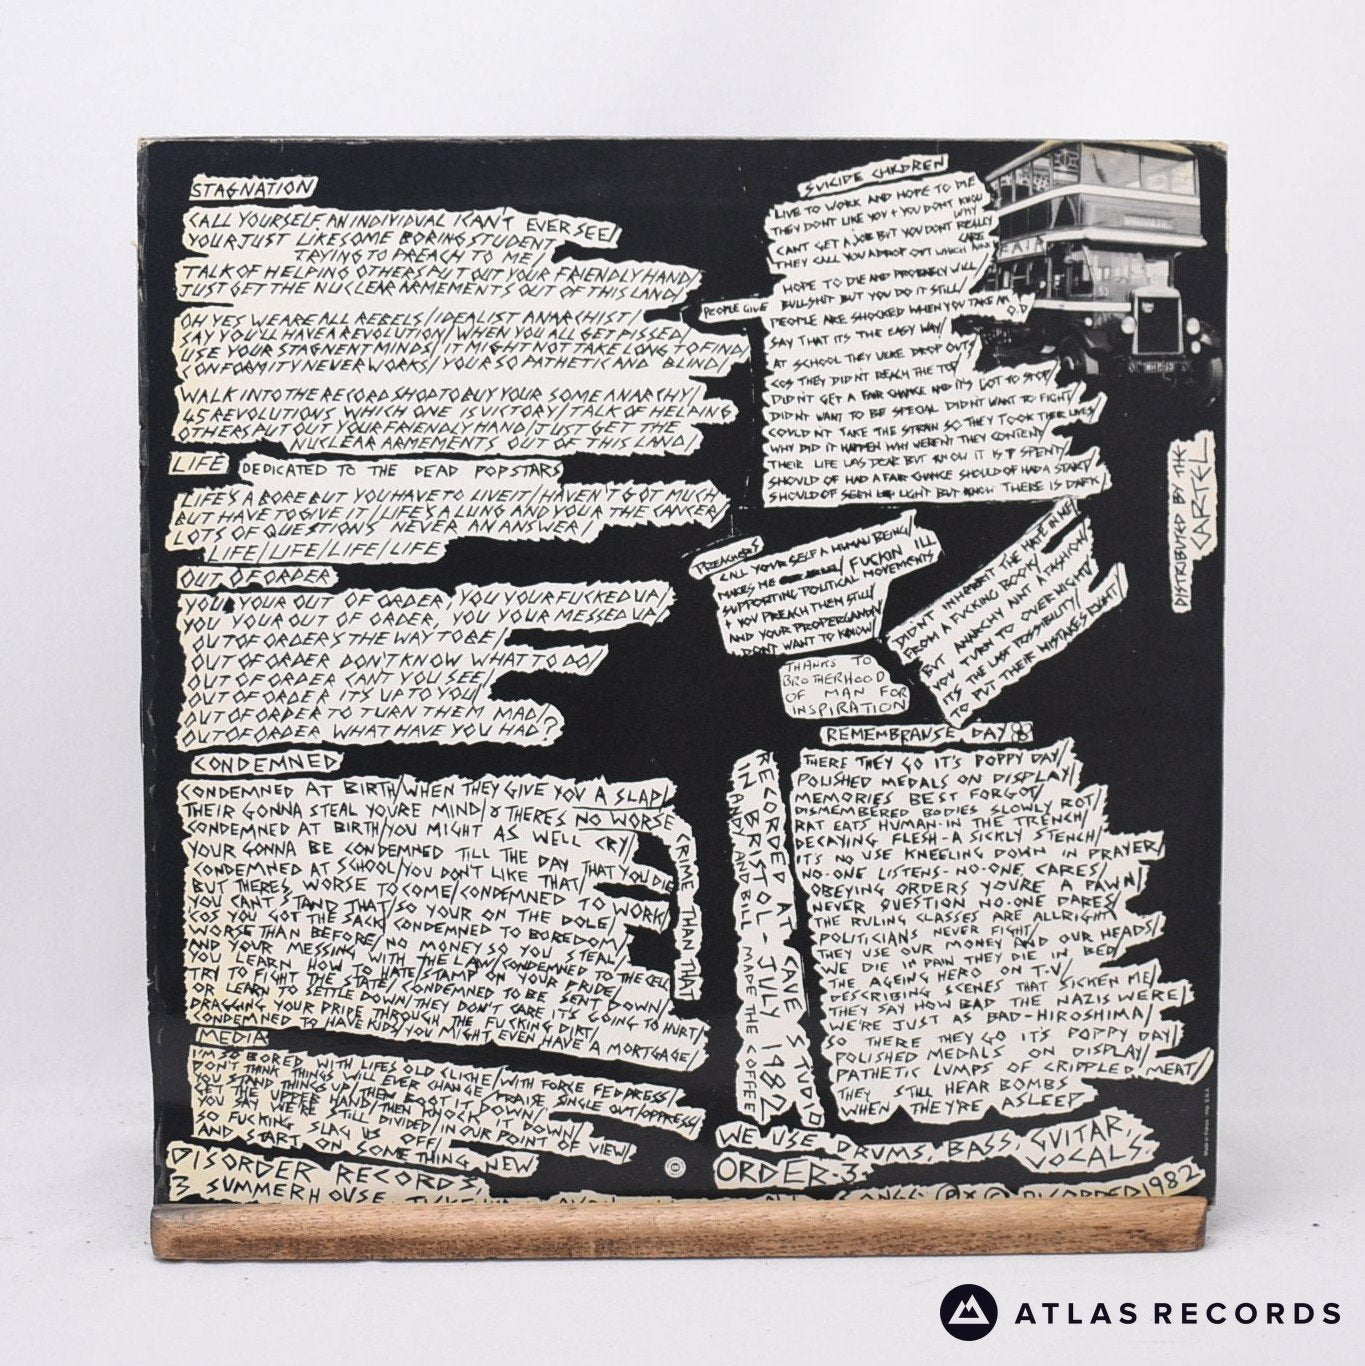 STAGNATION
CALL YOURSELF AN INDIVIDUAL I CAN'T EVER SEE/
YOUR JUST LIKE SOME BORING STUDENT
TRYING TO PREACH TO ME/
TALK OF HELPING OTHERS PUT OUT YOUR FRIENDLY HAND/
JUST GET THE NUCLEAR ARMEMENTS OUT OF THIS LAND/
OH YES WE ARE ALL REBELS/IDEALIST ANARCHIST/
SAY YOU'LL HAVE A REVOLUTION/WHEN YOU ALL GET PISSED/
USE YOUR STAGNENT MINDS/IT MIGHT NOT TAKE LONG TO FIND/
CONFORMITY NEVER WORKS/YOUR SO PATHETIC AND BLIND/
WALK INTO THE RECORD SHOP TO BUY YOUR SOME ANARCHY/
45 REVOLUTIONS WHICH ONE IS VICTORY/TALK OF HELPING
OTHERS PUT OUT YOUR FRIENDLY HAND/JUST GET THE
NUCLEAR ARMEMENTS OUT OF THIS LAND/
LIFE DEDICATED TO THE DEAD POPSTARS
LIFE'S A BORE BUT YOU HAVE TO LIVE IT/HAVEN'T GOT MUCH
BUT HAVE TO GIVE IT/LIFE'S A LUNG AND YOUR THE CANCER/
LOTS OF QUESTIONS NEVER AN ANSWER/
LIFE/LIFE/LIFE/LIFE
OUT OF ORDER
YOU YOUR OUT OF ORDER, YOU YOUR FUCKED UP/
YOU YOUR OUT OF ORDER, YOU YOUR MESSED UP/
OUT OF ORDERS THE WAY TO BE/
OUT OF ORDER DON'T KNOW WHAT TO DO/
OUT OF ORDER CAN'T YOU SEE/
OUT OF ORDER IT'S UP TO YOU/
OUT OF ORDER TO TURN THEM MAD/
OUT OF ORDER WHAT HAVE YOU HAD?
CONDEMNED
CONDEMNED AT BIRTH/WHEN THEY GIVE YOU A SLAP/
THEIR GONNA STEAL YOU'RE MIND/& THERES NO WORSE CRIME THAN THAT
CONDEMNED AT BIRTH/YOU MIGHT AS WELL CRY/
YOUR GONNA BE CONDEMNED TILL THE DAY THAT YOU DIE
CONDEMNED AT SCHOOL/YOU DON'T LIKE THAT/
BUT THERES WORSE TO COME/CONDEMNED TO WORK/
YOU CAN'T STAND THAT/SO YOUR ON THE DOLE/
'COS YOU GOT THE SACK/CONDEMNED TO BOREDOM/
WORSE THAN BEFORE/NO MONEY SO YOU STEAL/
AND YOUR MESSING WITH THE LAW/CONDEMNED TO THE CELL
YOU LEARN HOW TO HATE/STAMP ON YOUR PRIDE/
TRY TO FIGHT THE STATE/CONDEMNED TO BE SENT DOWN/
OR LEARN TO SETTLE DOWN/THEY DON'T CARE IT'S GOING TO HURT/
DRAGGING YOUR PRIDE THROUGH THE FUCKING DIRT/
CONDEMNED TO HAVE KIDS/YOU MIGHT EVEN HAVE A MORTGAGE/
MEDIA
I'M SO BORED WITH LIFES OLD CLICHE/WITH FORCE FED PRESS/
DON'T THINK THINGS WILL EVER CHANGE/PRAISE SINGLE OUT/OPPRESS/
YOU STAND THINGS UP/THEN BOOT IT DOWN/
GET THE UPPER HAND/THEN KNOCK IT DOWN/
YOU SAY WE'RE STILL DIVIDED/IN OUR POINT OF VIEW/
SO FUCKING SLAG US OFF/
AND START ON SOMETHING NEW
DISORDER RECORDS
3 SUMMERHOUSE
SUICIDE CHILDREN
LIVE TO WORK AND HOPE TO DIE
THEY DON'T LIKE YOU + YOU DON'T KNOW WHY
CANT GET A JOB BUT YOU DON'T REALLY CARE
THEY CALL YOU A DROP OUT WHICH
HOPE TO DIE AND PROBABLY WILL/
PEOPLE GIVE BULLSHIT BUT YOU DO IT STILL/
PEOPLE ARE SHOCKED WHEN YOU TAKE AN O.D
SAY THAT IT'S THE EASY WAY/
AT SCHOOL THEY WERE DROP OUTS
COS THEY DIDN'T REACH THE TOP
DIDN'T GET A FAIR CHANCE AND IT'S GOT TO STOP/
DIDNT WANT TO BE SPECIAL DIDN'T WANT TO FIGHT/
COULDNT TAKE THE STRAIN SO THEY TOOK THEIR LIVES/
WHY DID IT HAPPEN WHY WERENT THEY CONTENT/
THEIR LIFE WAS DEAR BUT KNOW IT IS SPENT/
SHOULD OF HAD A FAIR CHANCE SHOULD OF HAD A START/
SHOULD OF SEEN LIGHT BUT KNOW THERE IS DARK/
DISTRIBUTED BY THE
CARTEL
PREACHERS
CALL YOUR SELF A HUMAN BEING/
MAKES ME FUCKIN ILL
SUPPORTING POLITICAL MOVEMENTS
+ YOU PREACH THEM STILL/
AND YOUR PROPERGANDA
I DONT WANT TO KNOW/
DIDN'T INHERIT THE HATE IN ME/
FROM A FUCKING BOOK/
BUT ANARCHY AINT A FASHION/
YOU TURN TO OVERNIGHT/
ITS THE LAST POSSIBILITY/
TO PUT THEIR MISTAKES RIGHT/
THANKS TO
BROTHERHOOD
OF MAN FOR
INSPIRATION
REMEMBRANSE DAY
THERE THEY GO IT'S POPPY DAY/
POLISHED MEDALS ON DISPLAY/
MEMORIES BEST FORGOT/
DISMEMBERED BODIES SLOWLY ROT/
RAT EATS HUMAN-IN THE TRENCH/
DECAYING FLESH-A SICKLY STENCH/
IT'S NO USE KNEELING DOWN IN PRAYER/
NO-ONE LISTENS-NO-ONE CARES/
OBEYING ORDERS YOU'RE A PAWN/
NEVER QUESTION NO-ONE DARES/
THE RULING CLASSES ARE ALLRIGHT
POLITICIANS NEVER FIGHT/
THEY USE OUR MONEY AND OUR HEADS/
WE DIE IN PAIN THEY DIE IN BED/
THE AGEING HERO ON T.V/
DESCRIBING SCENES THAT SICKEN ME/
THEY SAY HOW BAD THE NAZIS WERE/
WE'RE JUST AS BAD-HIROSHIMA/
SO THERE THEY GO IT'S POPPY DAY/
POLISHED MEDALS ON DISPLAY/
PATHETIC LUMPS OF CRIPPLED MEAT/
THEY STILL HEAR BOMBS
WHEN THEY'RE ASLEEP
RECORDED AT CAVE STUDIO
IN BRISTOL-JULY 1982
ANDI AND BILL MADE THE COFFEE
WE USE DRUMS, BASS, GUITAR,
VOCALS.
ORDER.3.
SONGS P x C DISORDER 1982
ATLAS RECORDS